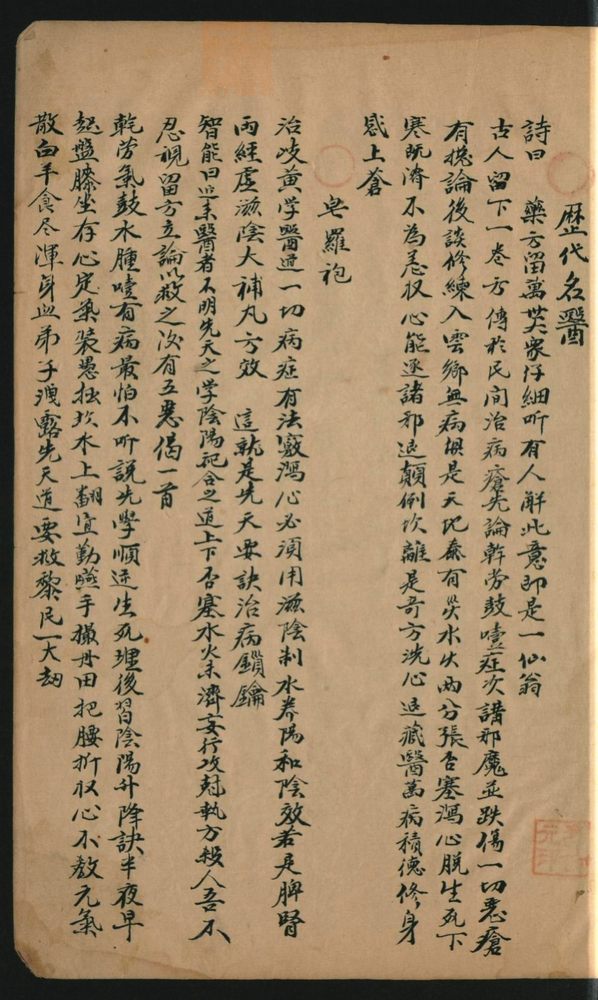 歷代名醫
詩曰　藥方留萬世衆仔細听有人解此意即是一仙翁
古人留下一卷方傳於民間治病瘡先論幹劳鼓噎症次講邪魔並跌傷一切惡瘡
有捴論後談修練入雲鄉無病胡是天地泰有災水火兩分張否塞瀉心脱生死下
寒既濟不為恙収心能逐諸邪退顛倒坎離是奇方洗心退藏醫萬病積德修身
感上蒼
皂羅袍
治岐黄学醫道一切病症有法竅瀉心必須用滋陰制水养陽和陰效若是脾腎
兩經虚滋陰大補丸方效　這就是先天要訣治病鎖鑰
智能曰近来醫者不明先天之学陰陽配合之道上下否塞水火未濟妄行攻尅执方殺人吾不
忍視留方立論以救之汝有五患偈一首
乾劳氣鼓水腫噎有病最怕不听説先學順逆生死理後習陰陽升降訣半夜早
起盤膝坐存心定氣裝愚拙坎水上翻宜勤嚥手攥丹田把腰折収心不教元氣
散白手食尽渾身血弟子洩露先天道要救黎民一大劫